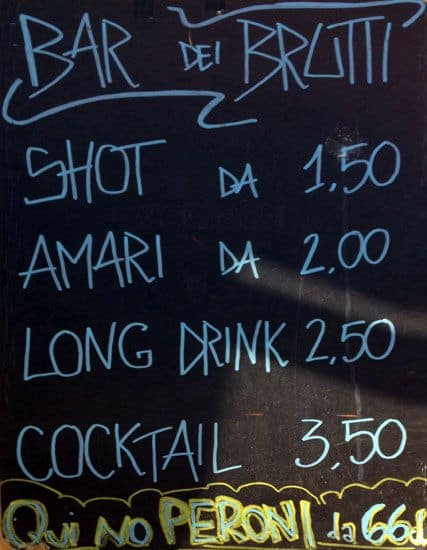 BAR DEI BRUTTI
SHOT DA 1,50
AMARI DA 2,00
LONG DRINK 2,50
COCKTAIL 3,50
Qui NO PERONI da 66cl